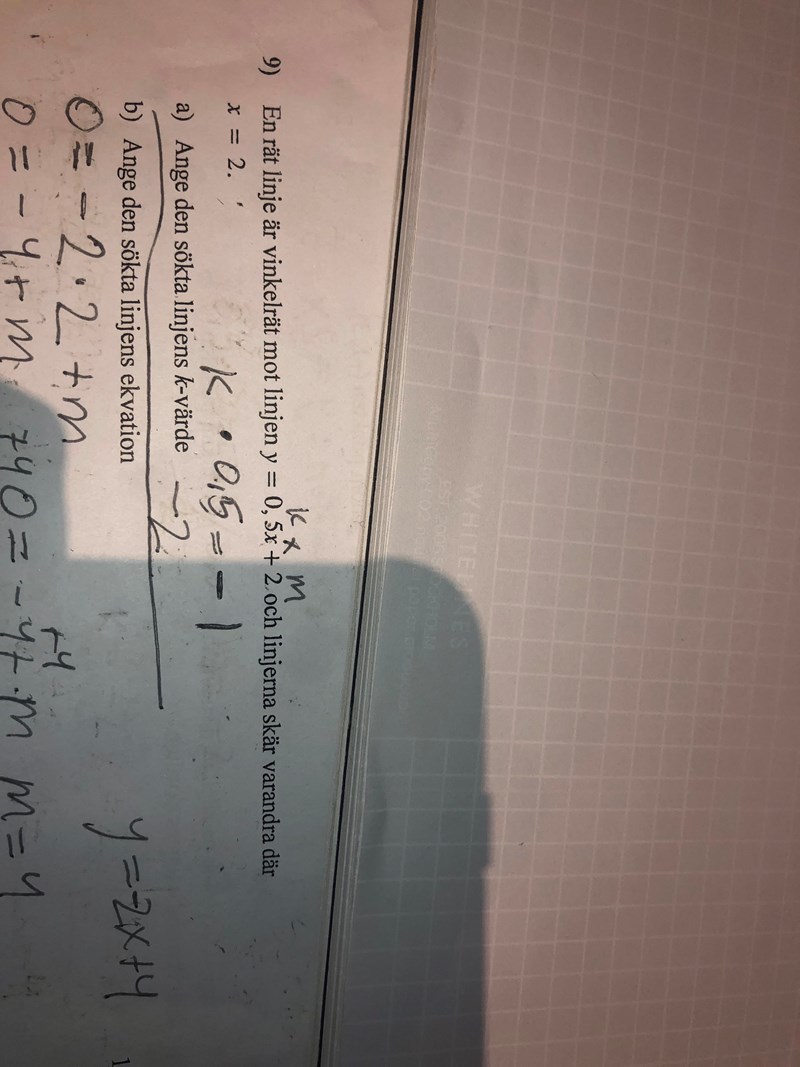 9) En rät linje är vinkelrät mot linjen y = 0,5x + 2 och linjerna skär varandra där
x = 2.
k x m
k · 0,5 = -1
a) Ange den sökta linjens k-värde -2
b) Ange den sökta linjens ekvation
y = -2x+4
0 = -2·2 +m
+4
0 = -4+m +4 0 = -4+m m=4
1
WHITE LINES